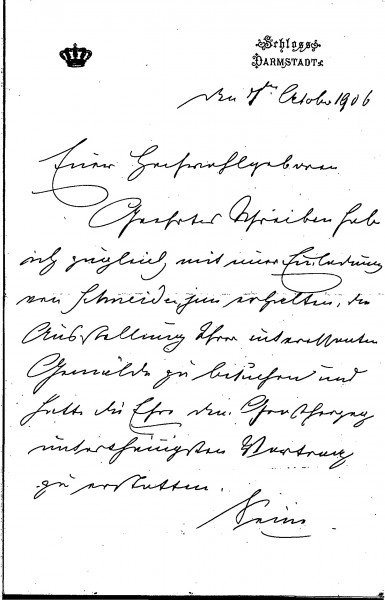 Schloss
DARMSTADT.
den 7ten October 1906
Euer Hochwohlgeboren
Geehrtes Schreiben habe
ich zugleich mit einer Einladung
von erhielten, die
Ausstellung Ihrer interessanten
Gemälde zu besuchen und
hatte die Ehre dem Großherzog
unterthänigsten Vortrag
zu erstatten.